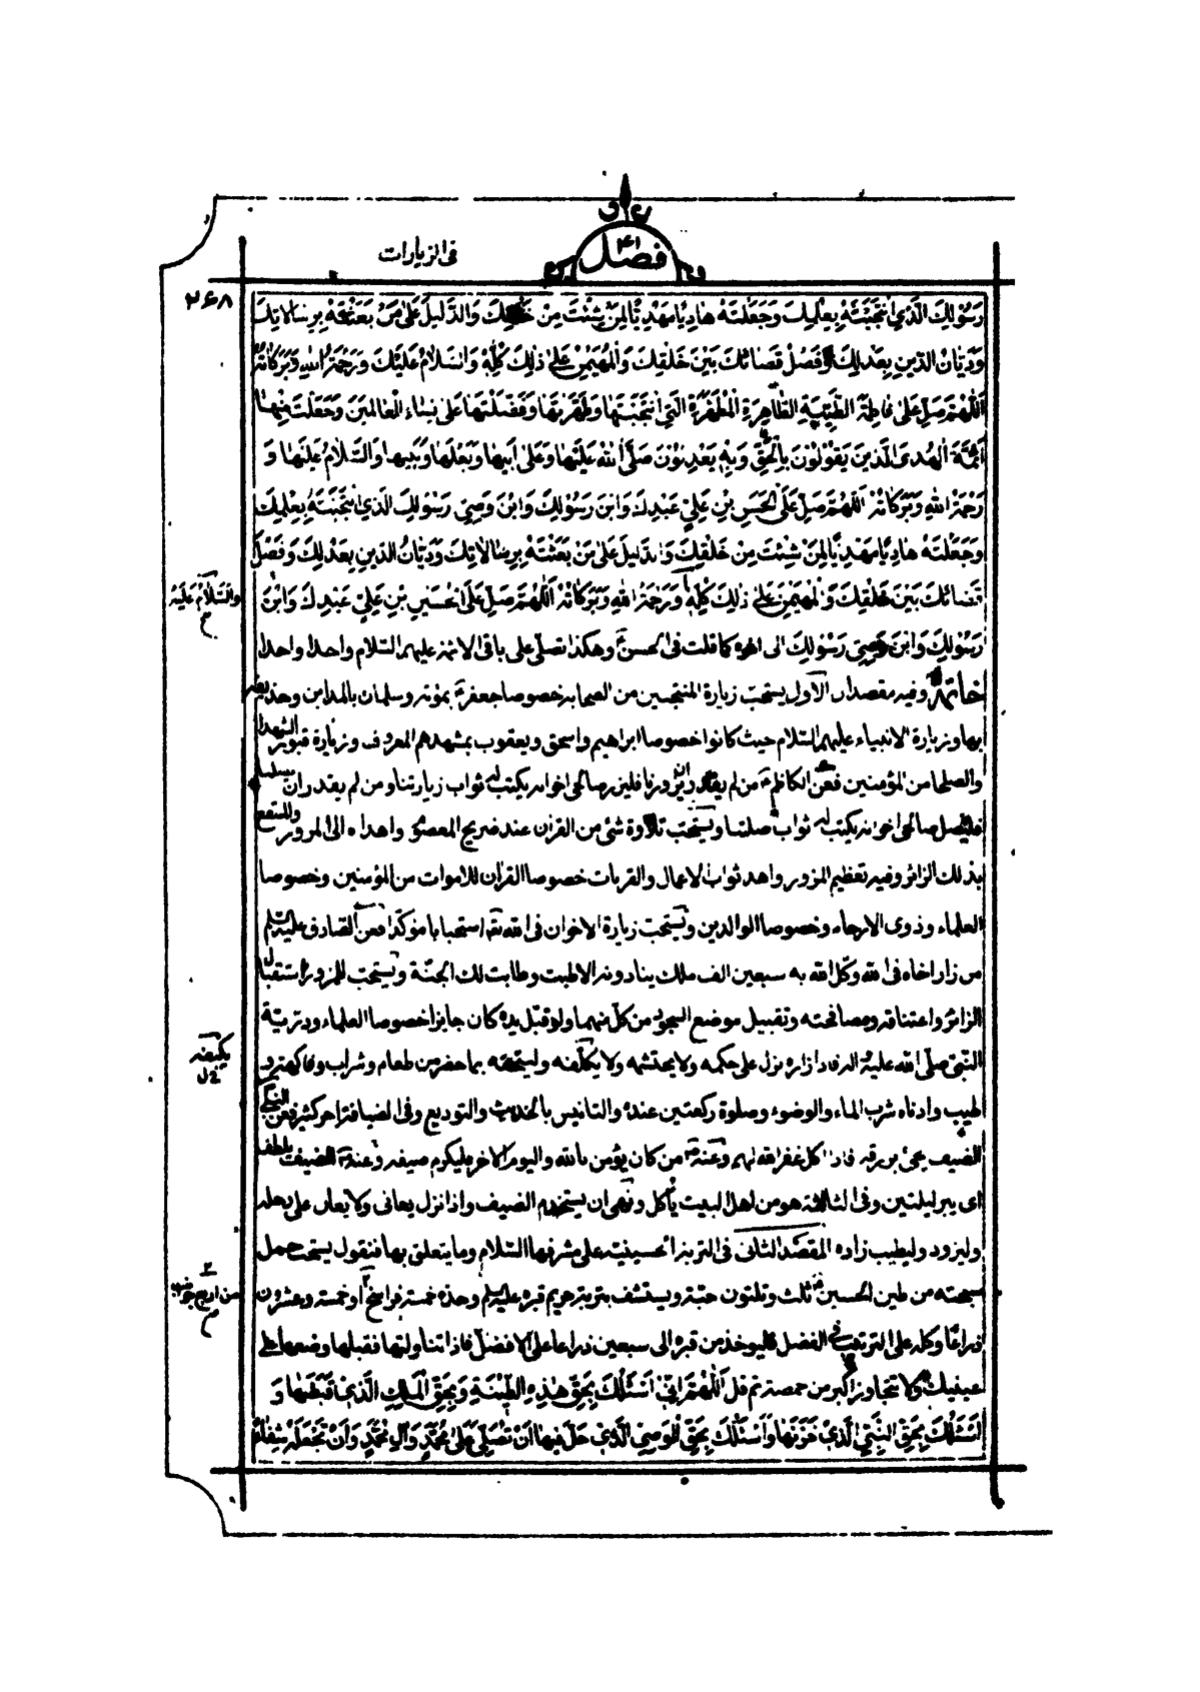 فى الزيارات
فصل ٤١
٢٦٨
رَسُولِكَ الَّذِي انْتَجَبْتَهُ بِعِلْمِكَ وَجَعَلْتَهُ هادِيًا مَهْدِيًّا لِمَنْ شِئْتَ مِنْ خَلْقِكَ وَالدَّلِيلَ عَلىٰ مَنْ بَعَثْتَهُ بِرِسالاتِكَ
وَدَيّانَ الدّينِ بِعَدْلِكَ وَفَصْلَ قَضائِكَ بَيْنَ خَلْقِكَ وَالْمُهَيْمِنَ عَلىٰ ذٰلِكَ كُلِّهِ وَالسَّلامُ عَلَيْكَ وَرَحْمَةُ اللهِ وَبَرَكاتُهُ
اَللّهُمَّ صَلِّ عَلىٰ فاطِمَةَ الطَّيِّبَةِ الطّاهِرَةِ الْمُطَهَّرَةِ الَّتِي انْتَجَبْتَها وَطَهَّرْتَها وَفَضَّلْتَها عَلىٰ نِساءِ الْعالَمينَ وَجَعَلْتَ مِنْها
اَئِمَّةَ الْهُدىَ الَّذينَ يَقُولُونَ بِالْحَقِّ وَبِهِ يَعْدِلُونَ صَلَّى اللهُ عَلَيْها وَعَلىٰ اَبيها وَبَعْلِها وَبَنيها وَالسَّلامُ عَلَيْها وَ
رَحْمَةُ اللهِ وَبَرَكاتُهُ اَللّهُمَّ صَلِّ عَلَى الْحَسَنِ بْنِ عَلِيٍّ عَبْدِكَ وَابْنِ رَسُولِكَ وَابْنِ وَصِيِّ رَسُولِكَ الَّذِي انْتَجَبْتَهُ بِعِلْمِكَ
وَجَعَلْتَهُ هادِيًا مَهْدِيًّا لِمَنْ شِئْتَ مِنْ خَلْقِكَ وَالدَّليلَ عَلىٰ مَنْ بَعَثْتَهُ بِرِسالاتِكَ وَدَيّانَ الدّينِ بِعَدْلِكَ وَفَصْلَ
قَضائِكَ بَيْنَ خَلْقِكَ وَالْمُهَيْمِنَ عَلىٰ ذٰلِكَ كُلِّهِ وَرَحْمَةُ اللهِ وَبَرَكاتُهُ اَللّهُمَّ صَلِّ عَلَى الْحُسَيْنِ بْنِ عَلِيٍّ عَبْدِكَ وَابْنِ
وَالسَّلامُ عَلَيْهِ
رَسُولِكَ وَابْنِ وَصِيِّ رَسُولِكَ الى اخره كما قلت فى الحسن ع وهكذا تصلى على باقى الائمة عليهم السلام واحدا واحدا
خاتمة وفيه مقصدان الأول يستحب زيارة المنتجبين من الصحابة خصوصا جعفر بموته وسلمان بالمداين وحذيفة
بها وزيارة الانبياء عليهم السلام حيث كانوا خصوصا ابراهيم واسحق ويعقوب بمشهدهم المعروف وزيارة قبور الشهدا
والصلحا من المؤمنين فعن الكاظم ع من لم يقدر ان يزورنا فليزر صالحى اخوانه يكتب له ثواب زيارتنا ومن لم يقدر ان يصلنا
فليصل صالحى اخوانه يكتب له ثواب صلتنا ويستحب تلاوة شئ من القران عند ضريح المعصوم واهداه الى المزور والمنتفع
بذلك الزائر وفيه تعظيم المزور واهد ثواب الاعمال والقربات خصوصا القران للاموات من المؤمنين وخصوصا
العلماء وذوى الارحام وخصوصا الوالدين ويستحب زيارة الاخوان فى الله تعه استحبابا مؤكدا فعن الصادق عليه السلم
من زار اخاه فى الله وكل الله به سبعين الف ملك ينادونه الا طبت وطابت لك الجنة ويستحب للمزور استقبال
الزائر واعتناقه ومصافحته وتقبيل موضع السجود من كل منهما ولو قبل يده كان جايزا خصوصا العلماء وذرية
النبى صلى الله عليه واله فاذا زاره نزل على حكمه ولا يحتشمه ولا يكلفه وليتحفه بما حضر من طعام وشراب وفاكهة و
يكيفه
ل
طيب وادناه شرب الماء والوضوء وصلوة ركعتين عنده والتانيس بالحديث والتوديع وفى الضيافة اجر كثير فعن النبى
الضيف يجئ برزقه فاذا اكل غفر الله لهم وعنه ص من كان يؤمن بالله واليوم الاخر فليكرم ضيفه وعنه ص الضيف يلطف
اى يبر ليلتين وفى الثالثة هو من اهل البيت يأكل ونهى ان يستخدم الضيف واذا نزل يعانى ولا يعان على رحله
وليزود وليطيب زاده المقصد الثانى فى التربة الحسينية على مشرفها السلام وما يتعلق بها فنقول يستحب حمل
سبحته من طين الحسين ع ثلث وثلثون حبة ويستشفى بتربة حريم قبره عليه السلم وحده خمسة فراسخ او خمسة وعشرون
من اربع جوانبه
ذراعا وكله على الترتيب فى الفضل فليوخذ من قبره الى سبعين ذراعا على الافضل فاذا تناولتها فقبلها وضعها على
عينيك ولا تتجاوز اكبر من حمصة ثم قل اَللّهُمَّ اِنّي اَسْئَلُكَ بِحَقِّ هٰذِهِ الطّينَةِ وَبِحَقِّ الْمَلَكِ الَّذي قَبَضَها وَ
اَسْئَلُكَ بِحَقِّ النَّبِيِّ الَّذي خَزَنَها وَاَسْئَلُكَ بِحَقِّ الْوَصِيِّ الَّذي حَلَّ فيها اَنْ تُصَلِّيَ عَلىٰ مُحَمَّدٍ وَآلِ مُحَمَّدٍ وَاَنْ تَجْعَلَهُ شِفاءً